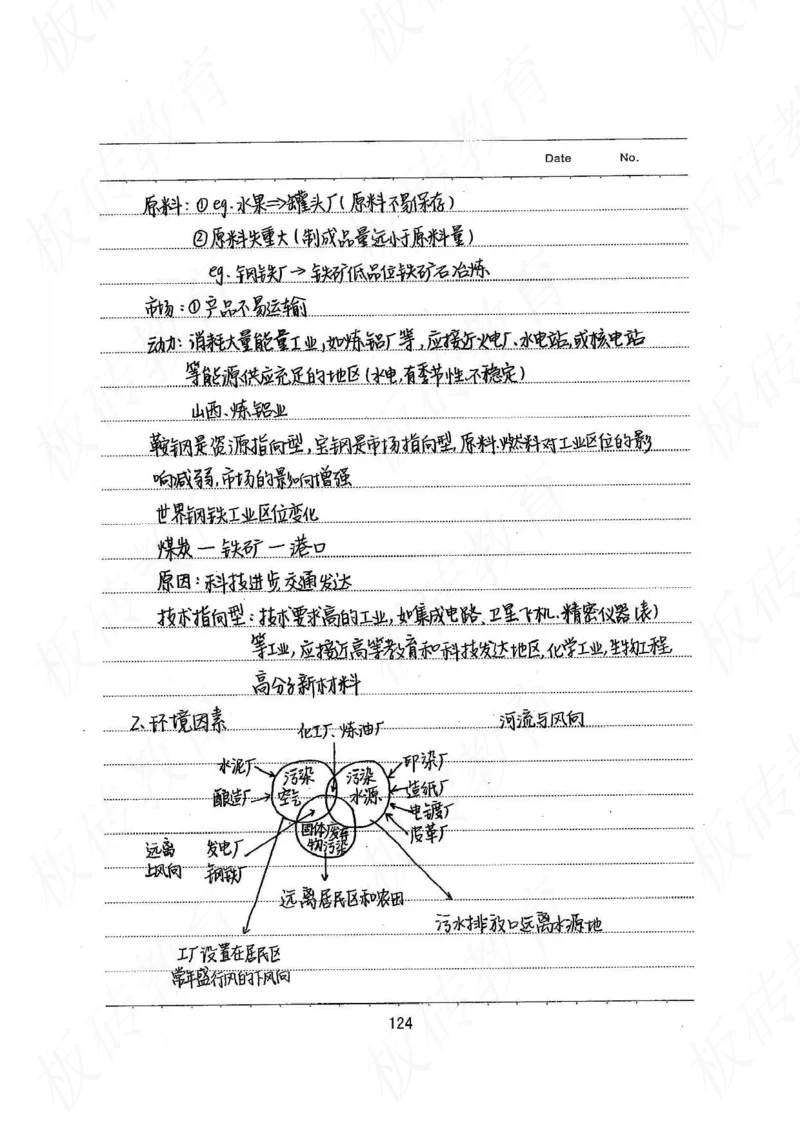 Date No.
原料:①eg.水果⇒罐头厂(原料不易保存)
②原料失重大(制成品量远小于原料量)
eg.钢铁厂→铁矿低品位铁矿石冶炼
市场:①产品不易运输
动力:消耗大量能量工业,如炼铝厂等,应接近火电厂、水电站,或核电站
等能源供应充足的地区(水电,有季节性,不稳定)
山西、炼铝业
鞍钢是资源指向型,宝钢是市场指向型,原料.燃料对工业区位的影
响减弱,市场的影响增强
世界钢铁工业区位变化
煤炭—铁矿—港口
原因:科技进步,交通发达
技术指向型:技术要求高的工业,如集成电路、卫星飞机.精密仪器(表)
等工业,应接近高等教育和科技发达地区,化学工业,生物工程,
高分子新材料
2、环境因素
化工厂、炼油厂
河流与风向
水泥厂
污染
空气
污染
水源
印染厂
酿造厂
造纸厂
电镀厂
皮革厂
固体废弃
物污染
远离
上风向
发电厂
钢铁厂
远离居民区和农田
污水排放口远离水源地
工厂设置在居民区
常年盛行风的下风向
124
板砖教育